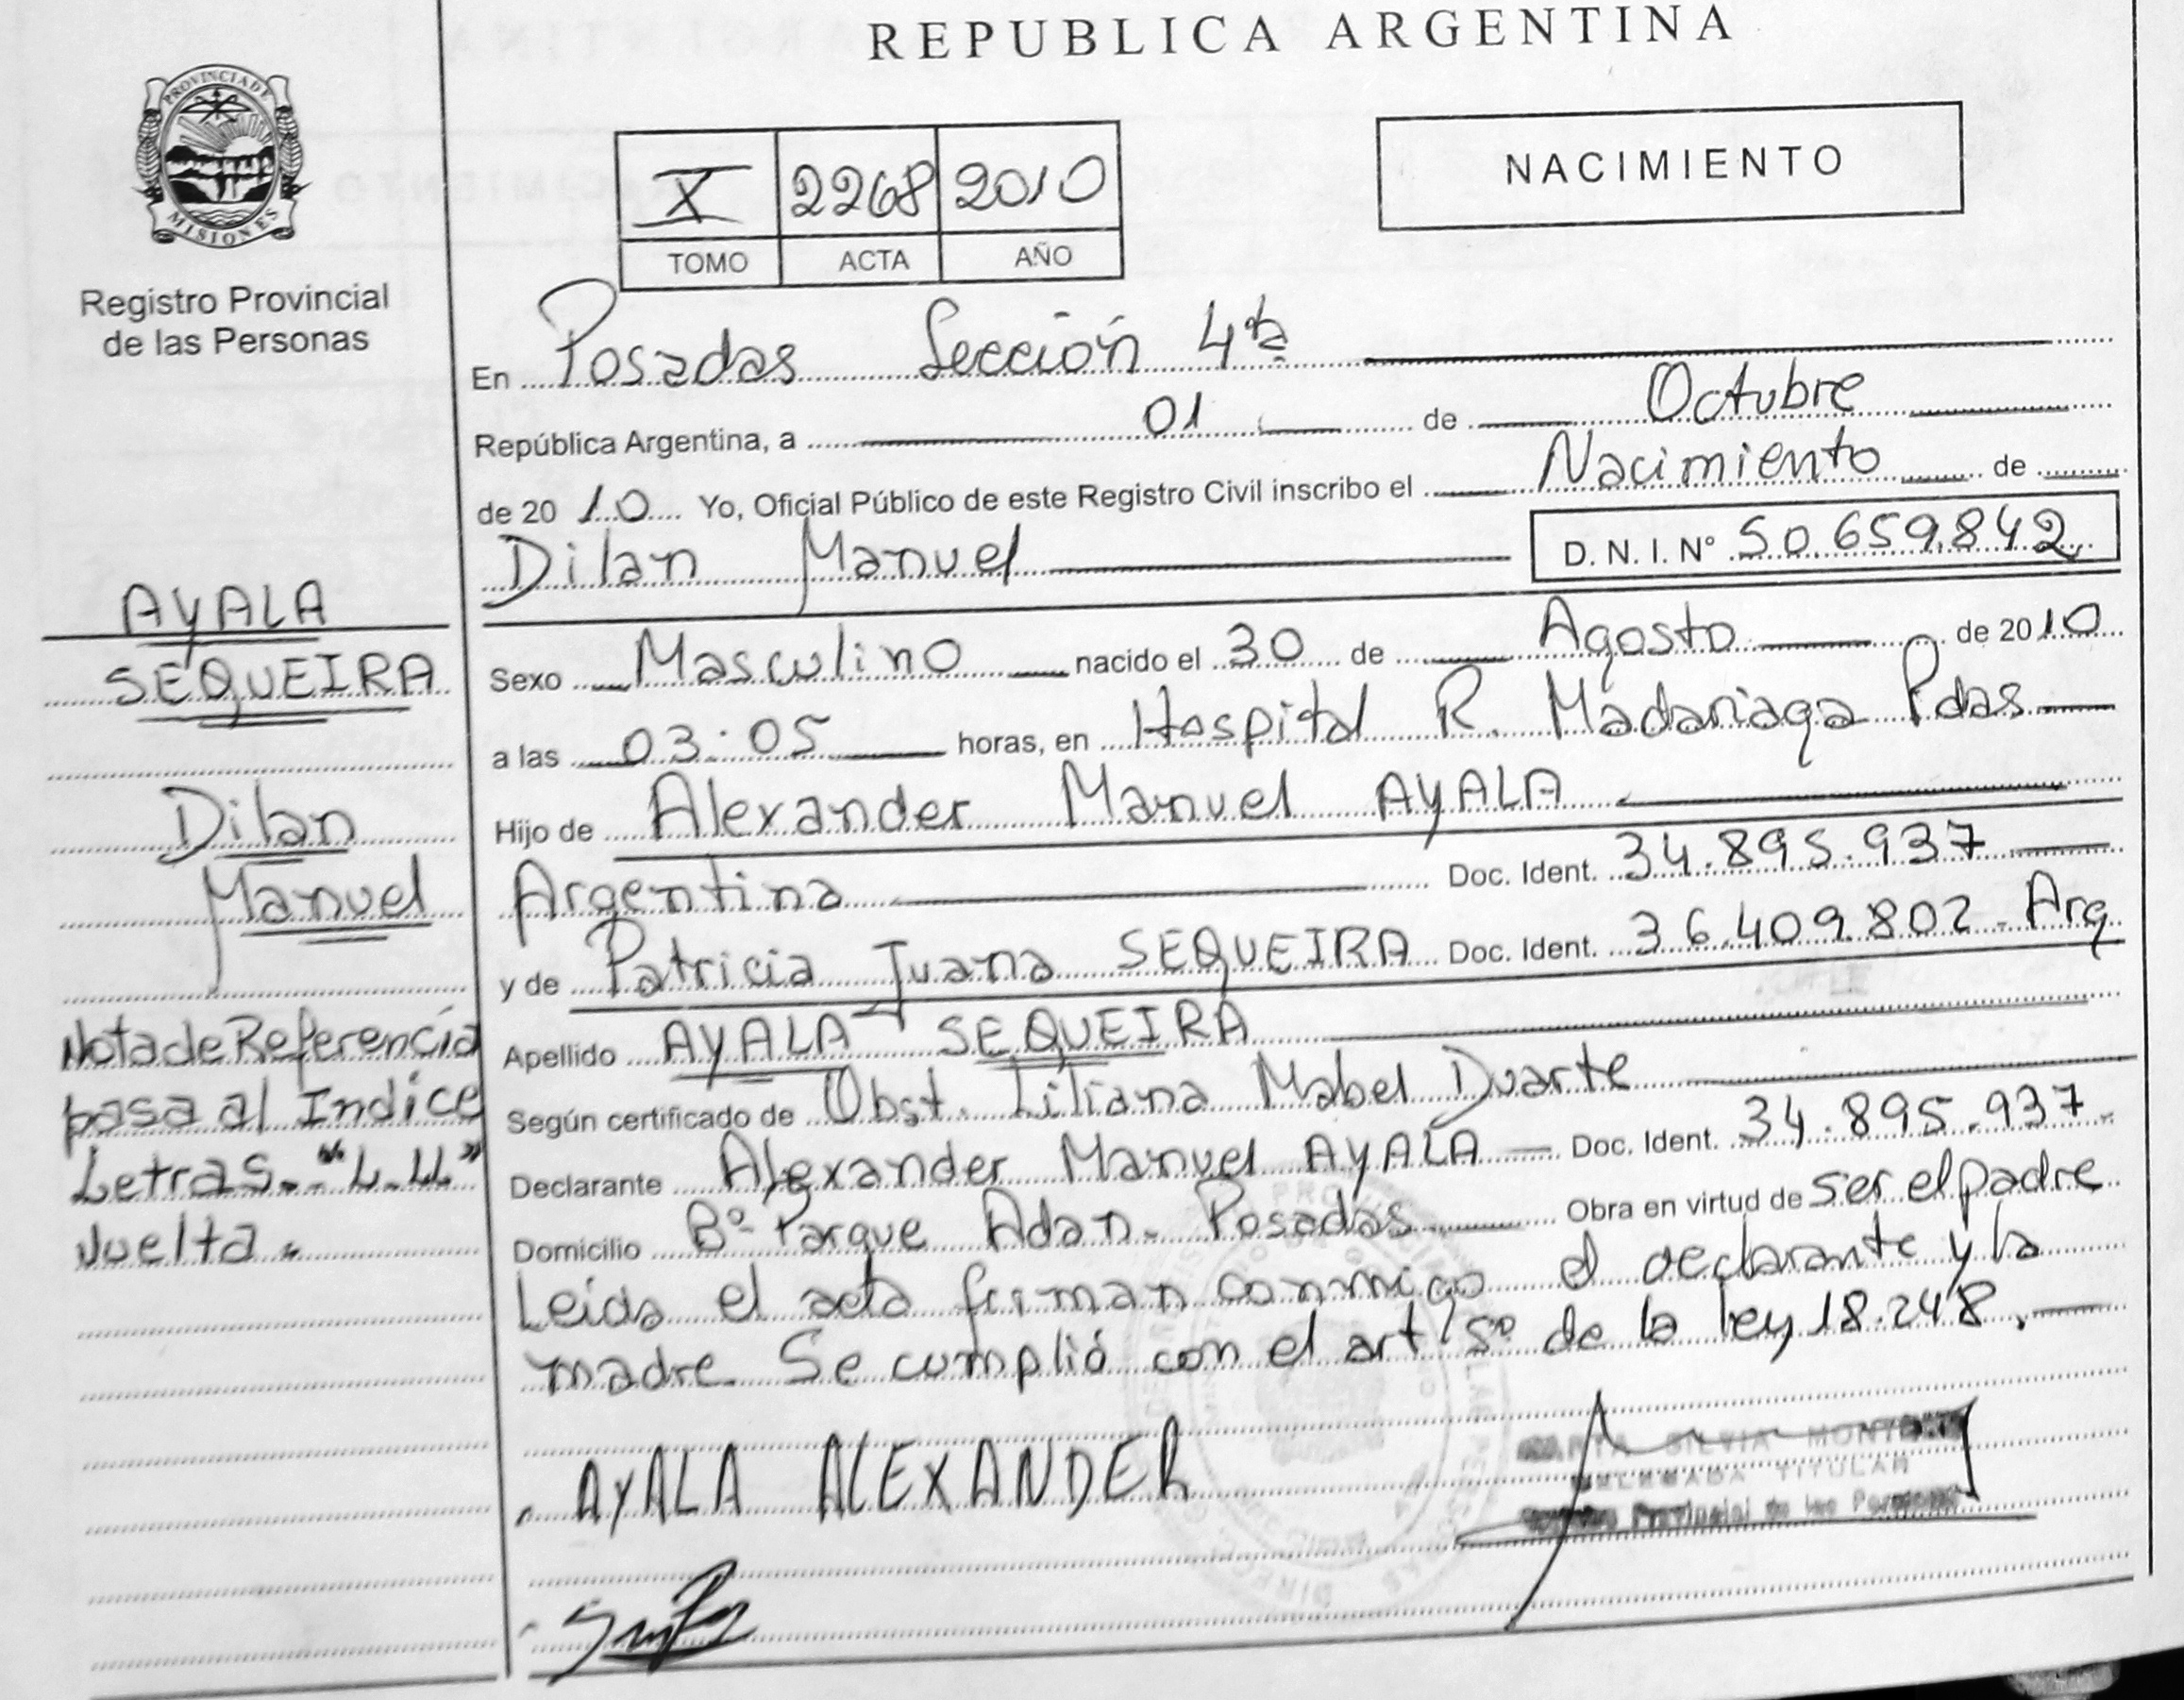 REPUBLICA ARGENTINA
PROVINCIA DE
MISIONES
Registro Provincial
de las Personas
X 2268 2010
TOMO ACTA AÑO
NACIMIENTO
En Posadas Sección 4ta
República Argentina, a 01 de Octubre
de 2010 Yo, Oficial Público de este Registro Civil inscribo el Nacimiento de
Dilan Manuel D. N. I. Nº 50.659.842
AYALA
SEQUEIRA
Dilan
Manuel
Nota de Referencia
pasa al Indice
Letras. "L.LL"
Vuelta.
Sexo Masculino nacido el 30 de Agosto de 2010
a las 03:05 horas, en Hospital R. Madariaga Pdas
Hijo de Alexander Manuel AYALA
Argentina Doc. Ident. 34.895.937
y de Patricia Juana SEQUEIRA Doc. Ident. 36.409.802 - Arg
Apellido AYALA SEQUEIRA
Según certificado de Obst. Liliana Mabel Duarte
Declarante Alexander Manuel AYALA Doc. Ident. 34.895.937.
Domicilio Bº Parque Adan. Posadas Obra en virtud de ser el padre
Leida el acta firman conmigo el declarante y la
madre. Se cumplió con el art 5º de la ley 18.248.
AYALA ALEXANDER
SILVIA
TITULAR
Provincial de las Personas